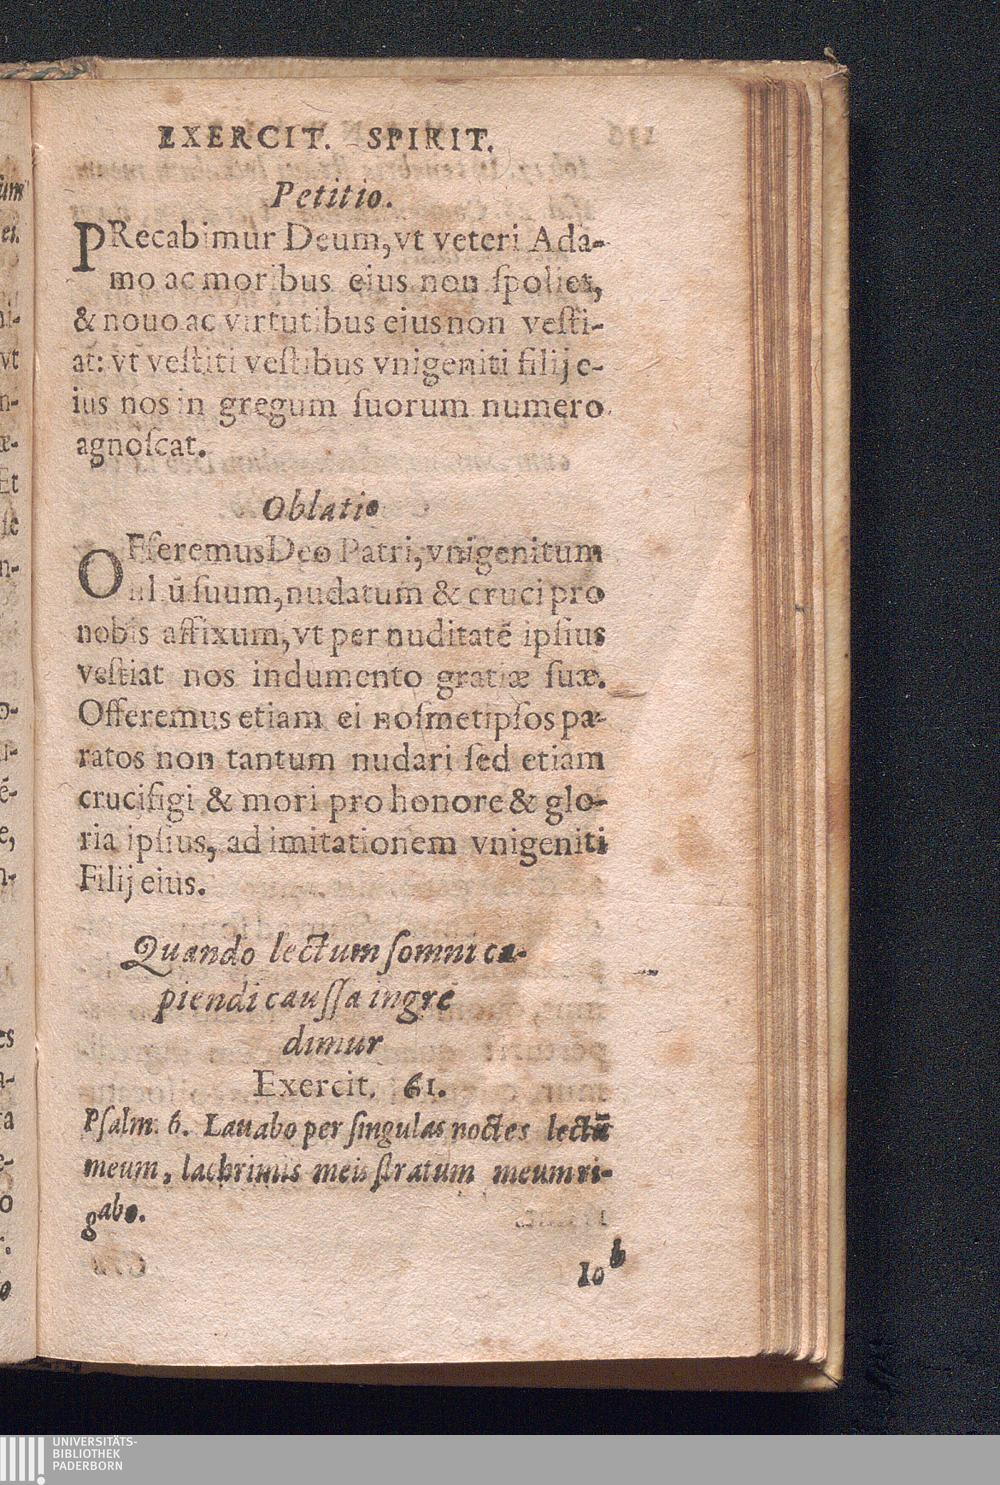 EXERCIT. SPIRIT.
Petitio.
PRecabimur Deum, vt veteri Ada-
mo ac moribus eius non ſpolies,
& nouo ac virtutibus eius non veſti-
at: vt veſtiti veſtibus vnigeniti filij e-
ius nos in gregum ſuorum numero
agnoſcat.
Oblatio
OFferemus Deo Patri, vnigenitum
ſuum, nudatum & cruci pro
nobis affixum, vt per nuditatē ipſius
veſtiat nos indumento gratiæ ſuæ.
Offeremus etiam ei noſmetipſos pa-
ratos non tantum nudari ſed etiam
crucifigi & mori pro honore & glo-
ria ipſius, ad imitationem vnigeniti
Filij eius.
Quando lectum ſomni ca-
piendi cauſſa ingre
dimur
Exercit. 61.
Pſalm. 6. Lauabo per ſingulas noctes lectū
meum, lachrimis meis ſtratum meum ri-
gabo.
Iob
UNIVERSITÄTS-
BIBLIOTHEK
PADERBORN